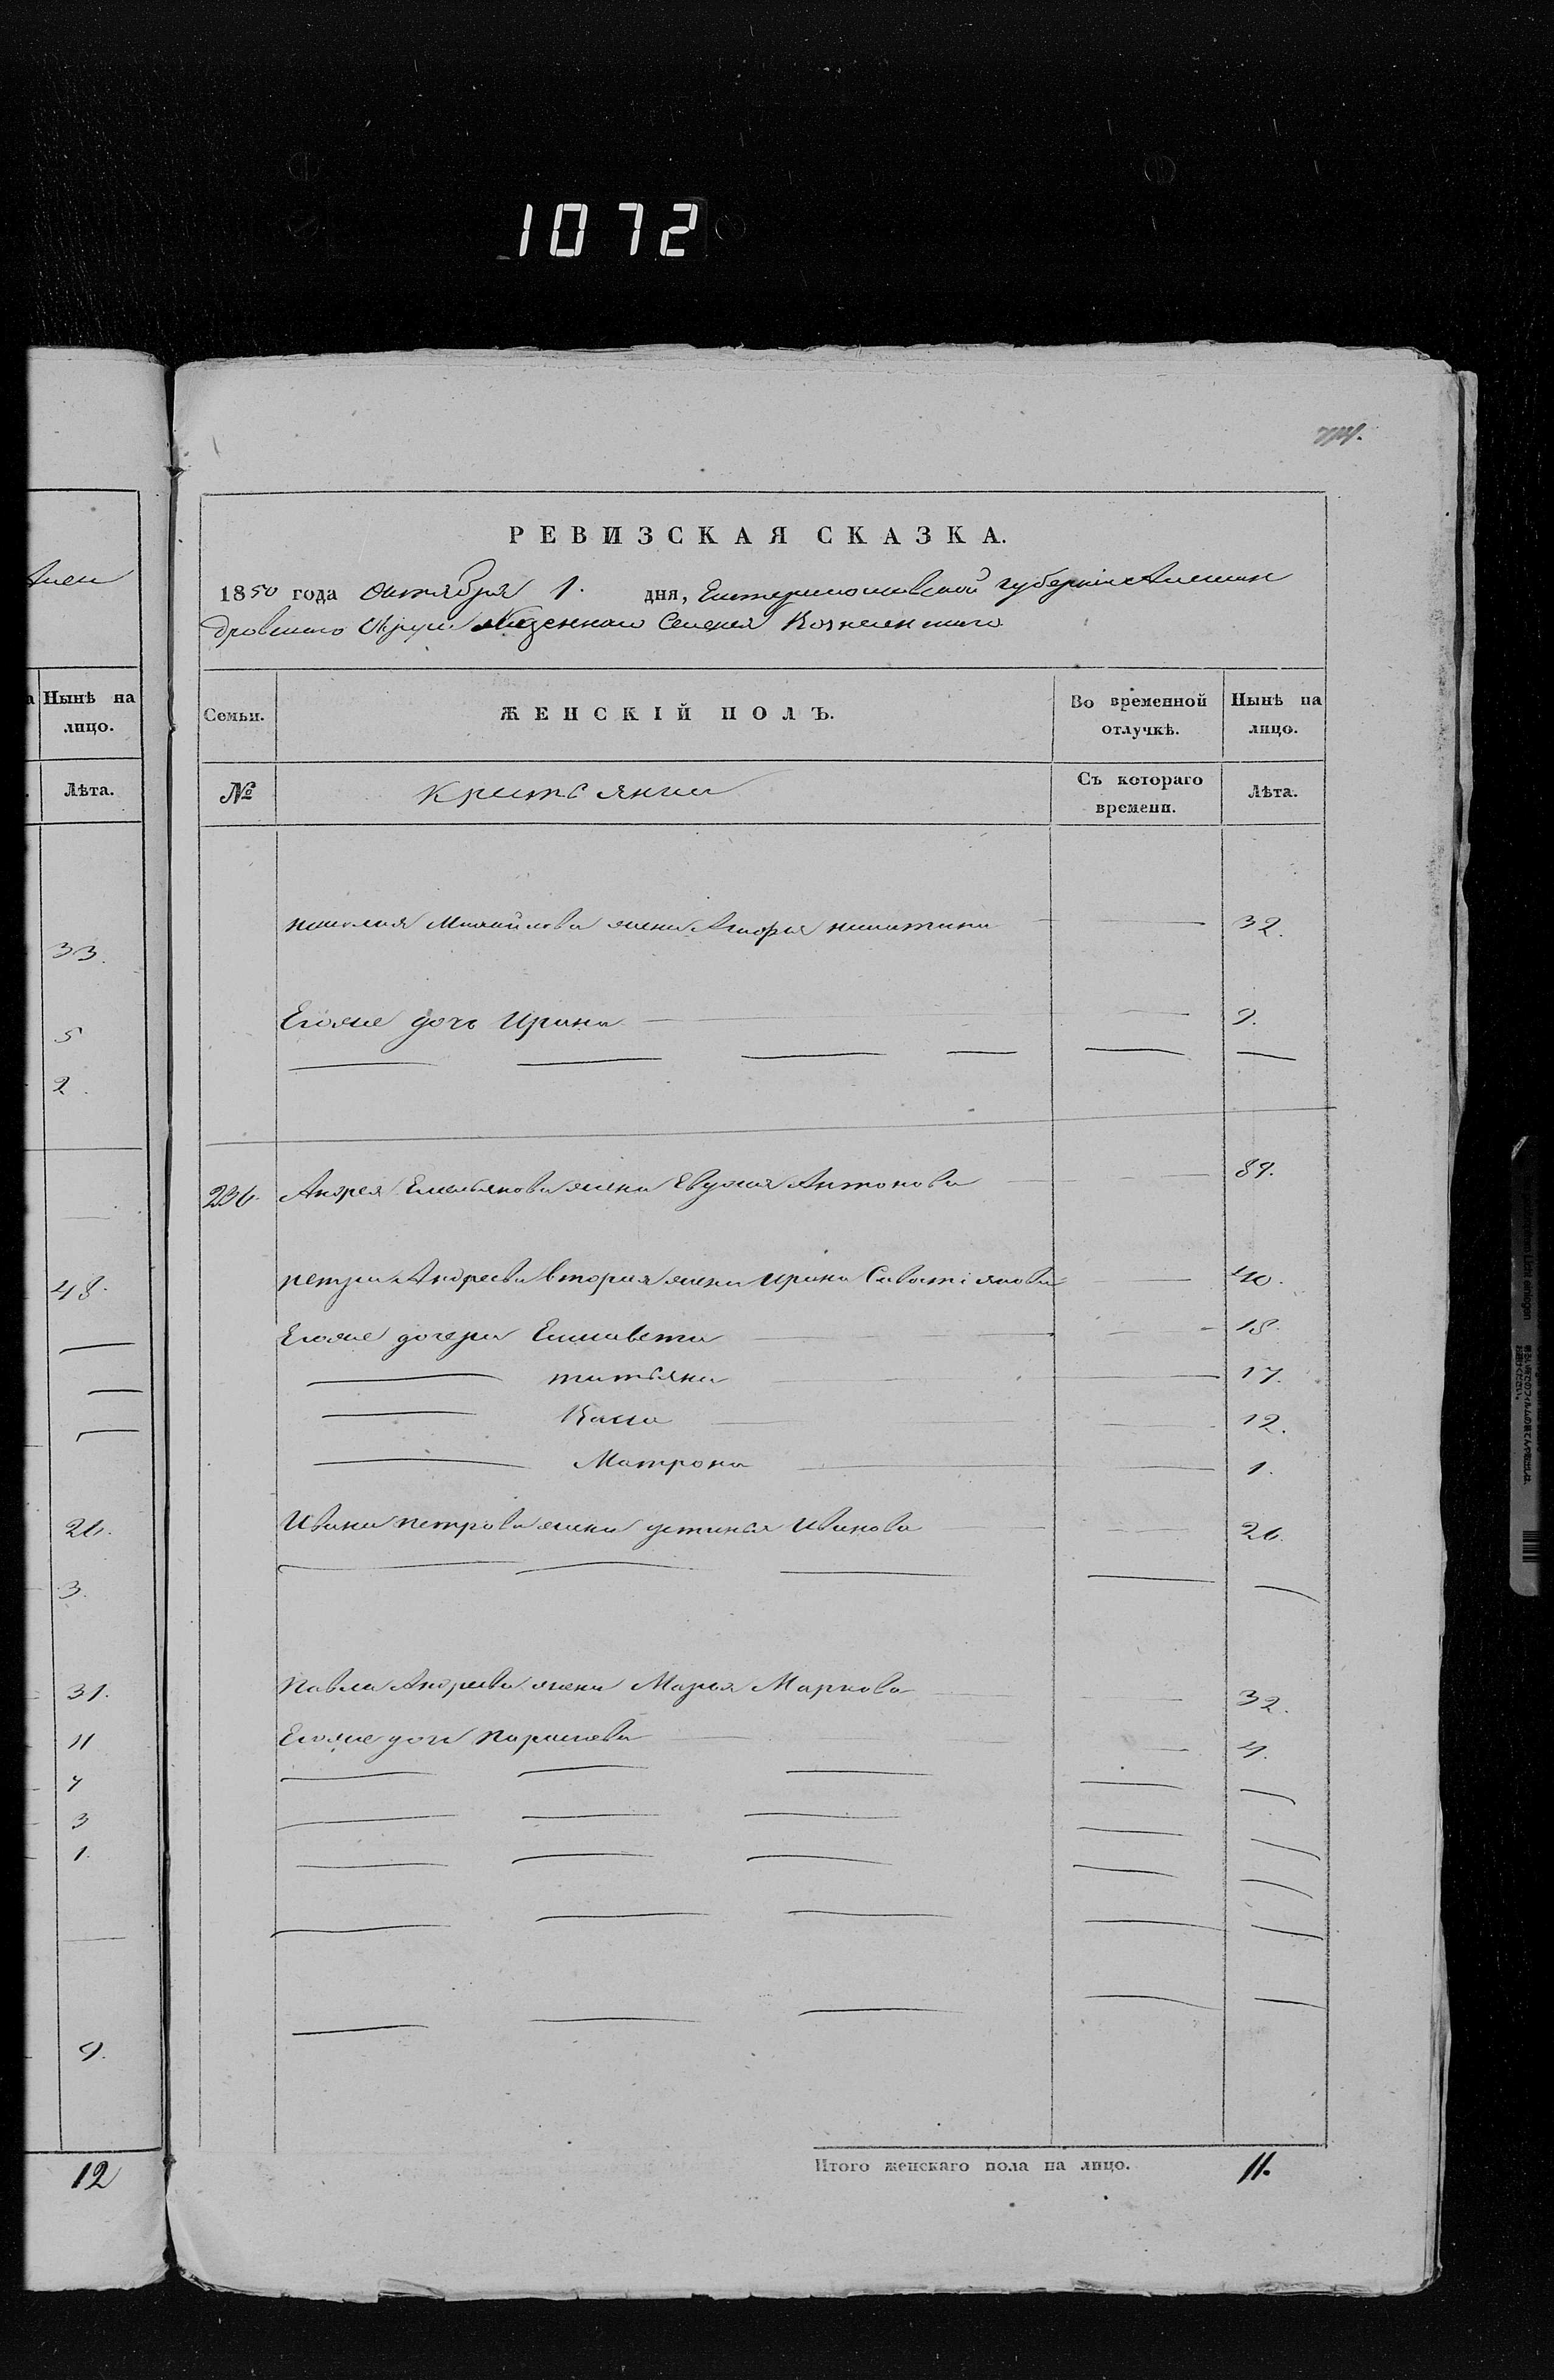 1072
РЕВИЗСКАЯ СКАЗКА.
1850 года Октября 1. дня, Екатеринославской губернии Алексан
дровскаго Округа Казеннаго Селения Вознесенскаго
Семьи.
ЖЕНСКІЙ ПОЛЪ.
Во временной отлучкѣ.
Нынѣ на лицо.
№
Крестьянки
Съ котораго времени.
Лѣта.
Николая Михайлова жена Агафья Никитина 32.
Егоже дочь Ирина 9.
236. Андрея Емельянова жена Евдокия Антонова 89.
Петра Андреева вторая жена Ирина Савастіянова 40.
Егоже дочери Елисавета 18.
татьяна 17.
12.
Матрона 1.
Ивана Петрова жена устинья Иванова 26.
Павла Андреева жена Марья Маркова 32.
Егоже дочь Парасковья 4.
Итого женскаго пола на лицо. 11.
Нынѣ на
лицо.
Лѣта.
33.
5
2.
48.
26.
3.
31.
11
7
3
1.
9.
12